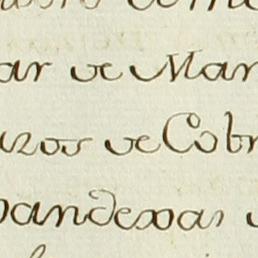 ar de Mar
azos de Cobr
pandexas